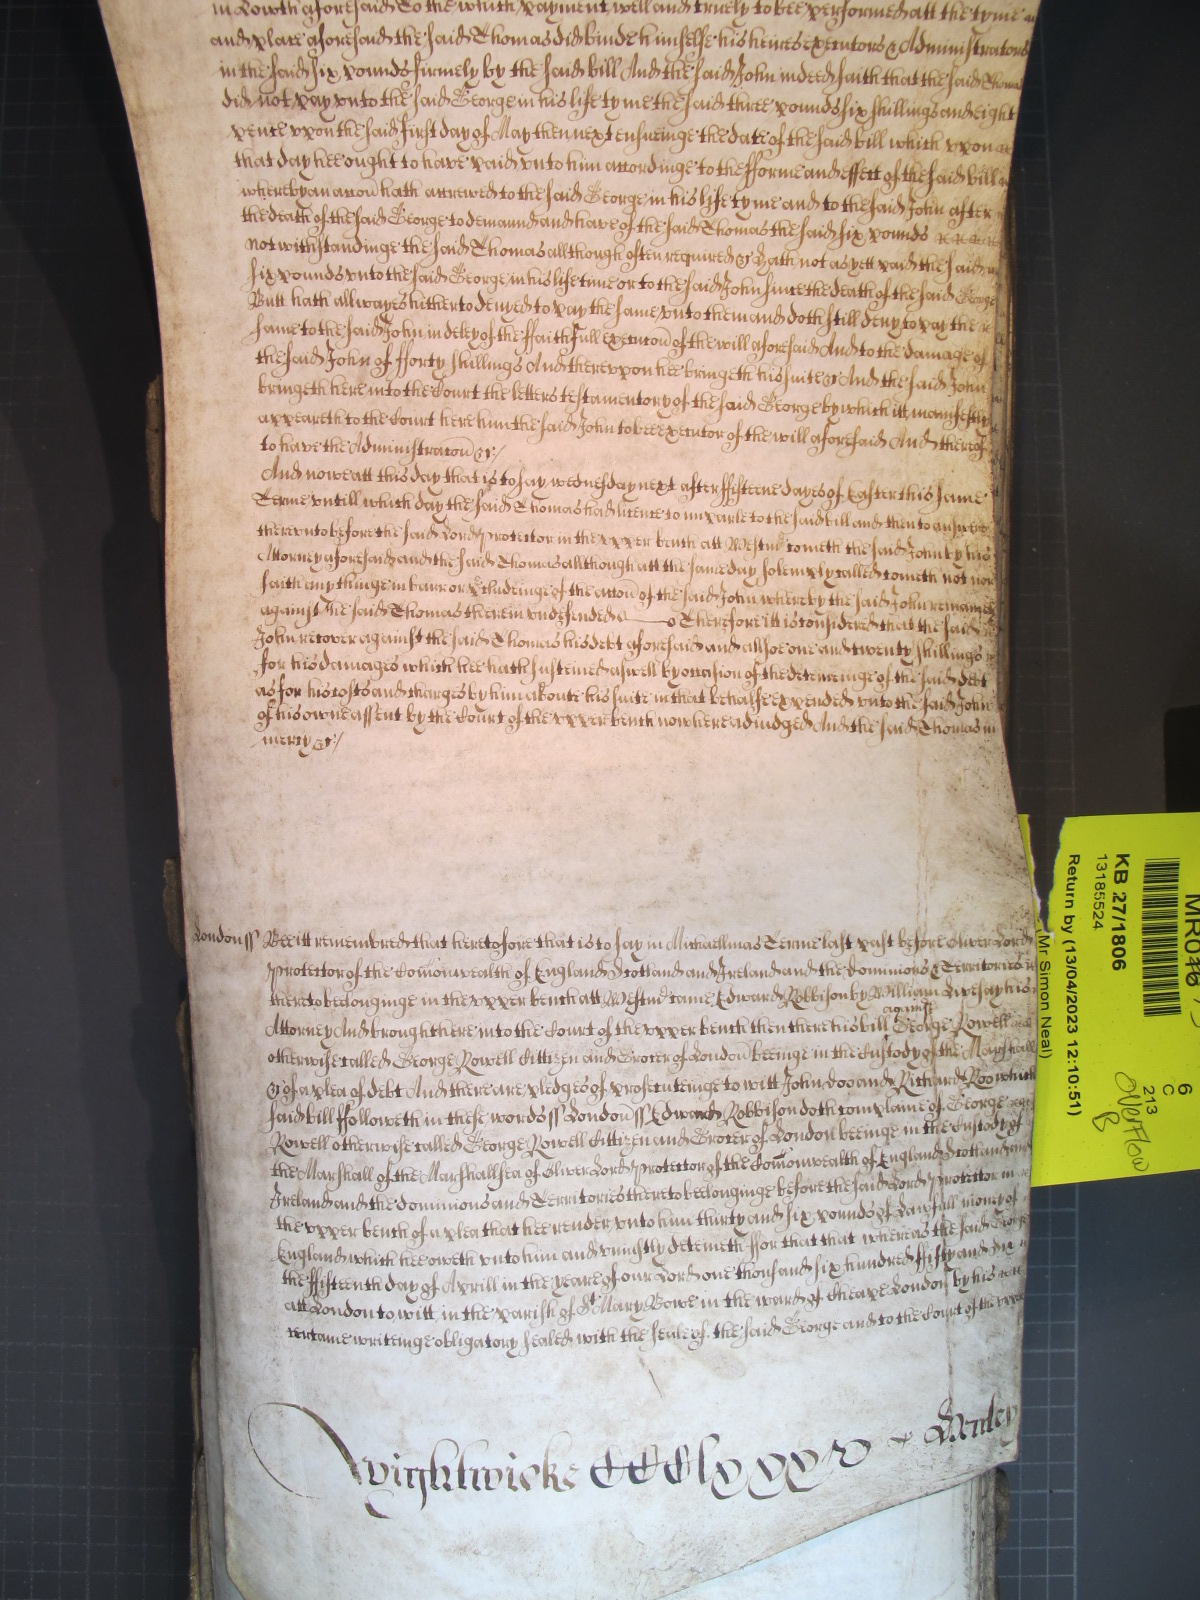 in Lowth aforesaid To the which payment well and truely to bee performed att the tyme
and place aforesaid the said Thomas did binde himselfe his heires executors & Administrators
in the said six pounds firmely by the said bill And the said John indeed saith that the said Thomas
did not pay vnto the said George in his life tyme the said three pounds six shillings and eight
pence vpon the said first day of May then next ensueinge the date of the said bill which vpon
that day hee ought to have paid vnto him accordinge to the fforme and effect of the said bill
whereby an accōn hath accrewed to the said George in his life tyme and to the said John after
the death of the said George to demaund and have of the said Thomas the said six pounds
notwithstandinge the said Thomas allthough often required &c hath not as yett paid the said
six pounds vnto the said George in his life time or to the said John since the death of the said George
Butt hath allwayes hitherto denyed to pay the same vnto them and doth still deny to pay the
same to the said John in deley of the ffaithfull execucōn of the will aforesaid And to the damage of
the said John of fforty shillings And therevpon hee bringeth his suite &c And the said John
bringeth here into the Court the letters testamentory of the said George by which itt manifestly
appeareth to the Court here him the said John to bee executor of the will aforesaid And thereof
to have the Administracōn &c/
And nowe att this day that is to say wednesday next after ffifteene dayes of Easter this same
Terme vntill which day the said Thomas had licence to imparle to the said bill and then to answere
therevnto before the said Lord Protector in the vpper bench att Westm̄ cometh the said John by his
Attorney aforesaid and the said Thomas allthough att the same day solemply called cometh not nor
saith any thinge in barr or p̱cludeinge of the accōn of the said John whereby the said John remaines
against the said Thomas therein vndefended Therefore itt is considered that the said
John recover against the said Thomas his debt aforesaid and allsoe one and twenty shillings
for his damages which hee hath susteined aswell by occasion of the deteineinge of the said debt
as for his costs and charges by him aboute his suite in that behalfe expended vnto the said John
of his owne assent by the Court of the vpper bench now here adiudged And the said Thomas in
mercy &c/
London ss Bee itt remembred that heretofore that is to say in Michaellmas Terme last past before Oliver Lord
Protector of the Com̄onwealth of England Scotland and Ireland and the dominions & Territories
thereto belonginge in the vpper bench att Westm̄ came Edward Robbison by William Livesay his
Attorney And brought here into the Court of the vpper bench then there his bill against George Rowell
otherwise called George Rowell Cittizen and Grocer of London beeinge in the Custody of the Marshall
&c of a plea of debt And there are pledges of prosecuteinge to witt John doo and Richard Roo which
said bill ffolloweth in these words ss London ss Edward Robbison doth complaine of George
Rowell otherwise called George Rowell Cittizen and Grocer of London beeinge in the Custody of
the Marshall of the Marshallsea of Oliver Lord Protector of the Com̄onwealth of England Scotland and
Ireland and the dominions and Territories thereto belonginge before the said Lord Protector in
the vpper bench of a plea that hee render vnto him thirty and six pounds of lawfull money of
England which hee oweth vnto him and vniustly deteineth ffor that that whereas the said George
the ffifteenth day of Aprill in the yeare of our Lord one thousand six hundred ffifty and
att London to witt in the parish of St Mary Bowe in the ward of Cheape London by his
certaine writeinge obligatory sealed with the seale of the said George and to the Court of the vpper
Wightwicke CCClxxxv Henley
MR046
KB 27/1806
13185524
Return by (13/04/2023 12:10:51)
(Mr Simon Neal)
6
C
213
Overflow
B